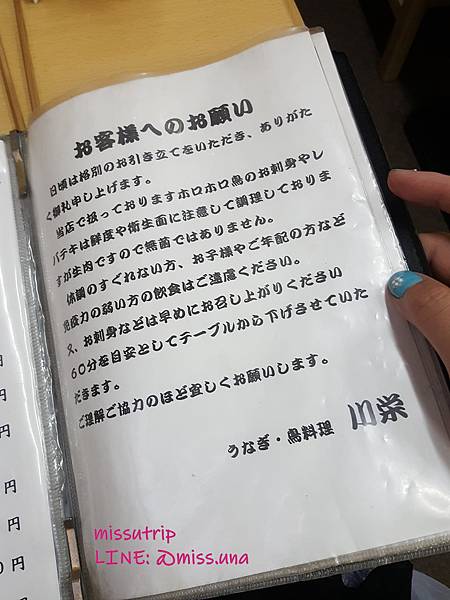 お客様へのお願い
日頃は格別のお引き立てをいただき、ありがた
く御礼申し上げます。
当店で扱っておりますホロホロ鳥のお刺身やレ
バテキは鮮度や衛生面に注意して調理しておりま
すが生肉ですので無菌ではありません。
体調のすぐれない方、お子様やご年配の方など
免疫力の弱い方の飲食はご遠慮ください。
又、お刺身などは早めにお召し上がりください
60分を目安としてテーブルから下げさせていた
だきます。
ご理解ご協力のほど宜しくお願いします。
うなぎ・鳥料理 川栄
円
円
円
円
円
0円
missutrip
LINE: @miss.una